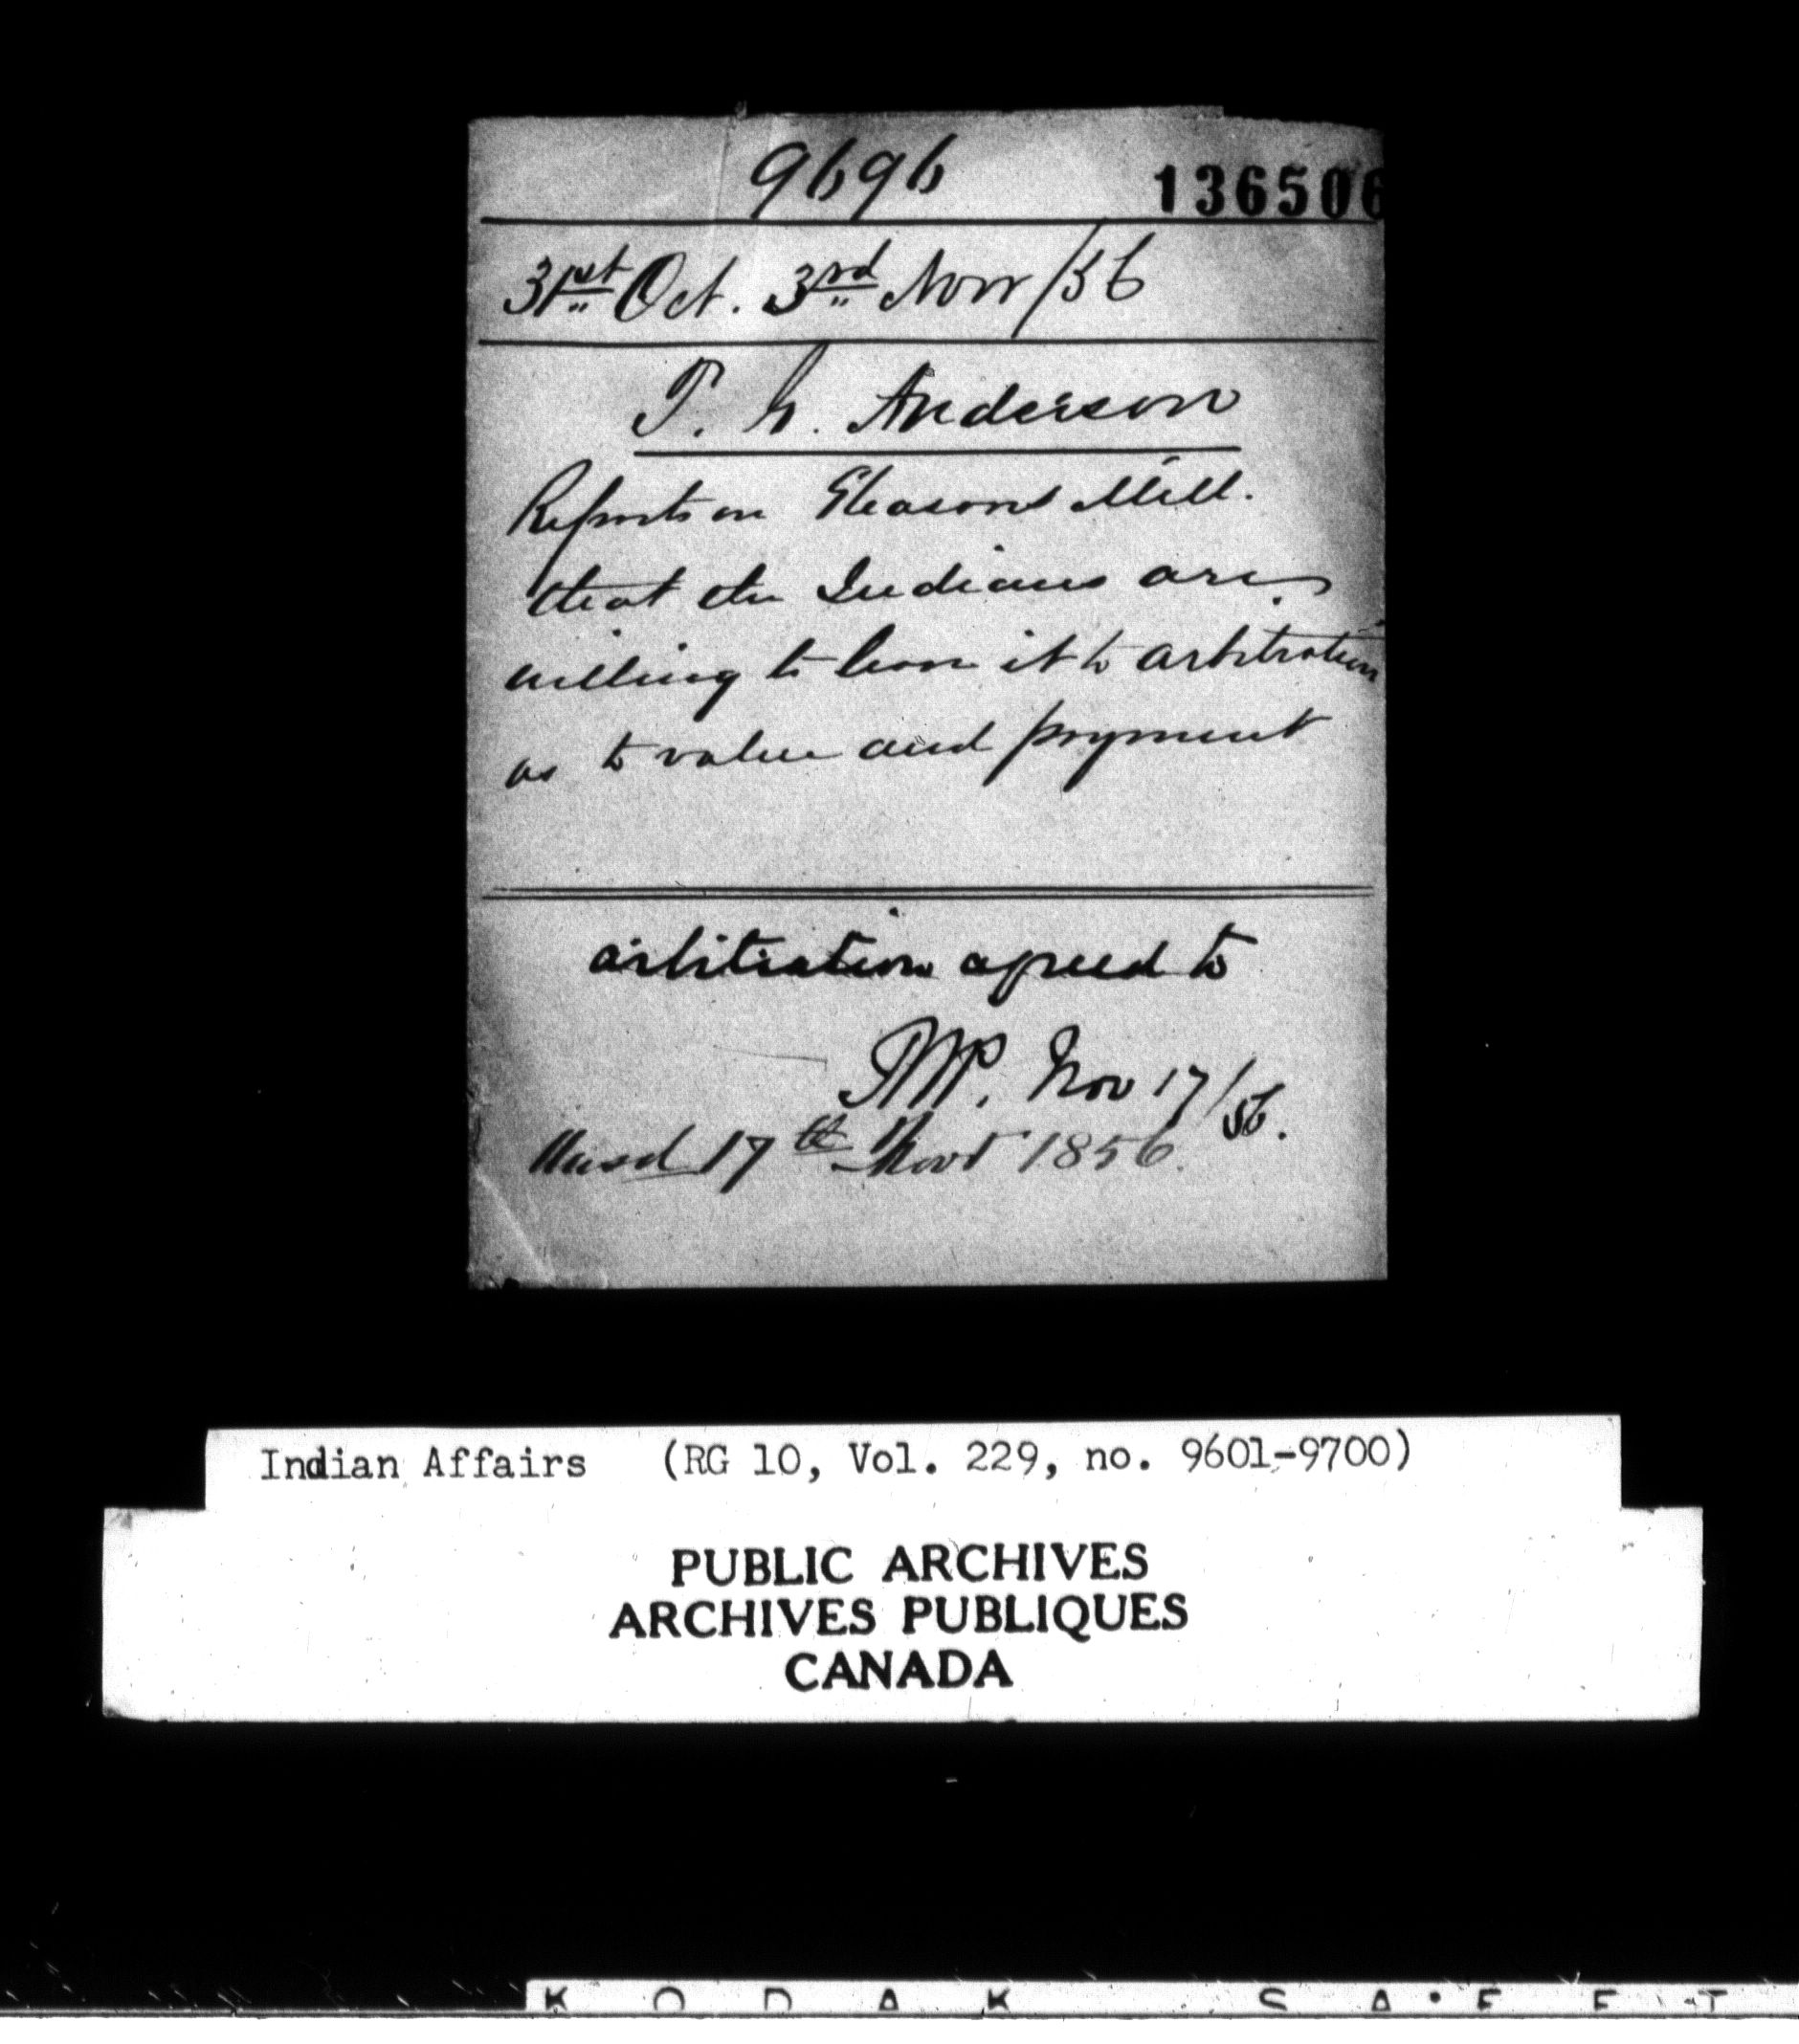 9696
136506
31st Oct. 3rd Nov /56
T. G. Anderson
Reports on Gleasons Mill.
that the Indians are
willing to leave it to arbitration
as to value and payment
arbitration agreed to
Nov 17/56.
Ansd 17th Novr 1856.
Indian Affairs (RG 10, Vol. 229, no. 9601-9700)
PUBLIC ARCHIVES
ARCHIVES PUBLIQUES
CANADA
KODAK SAFET